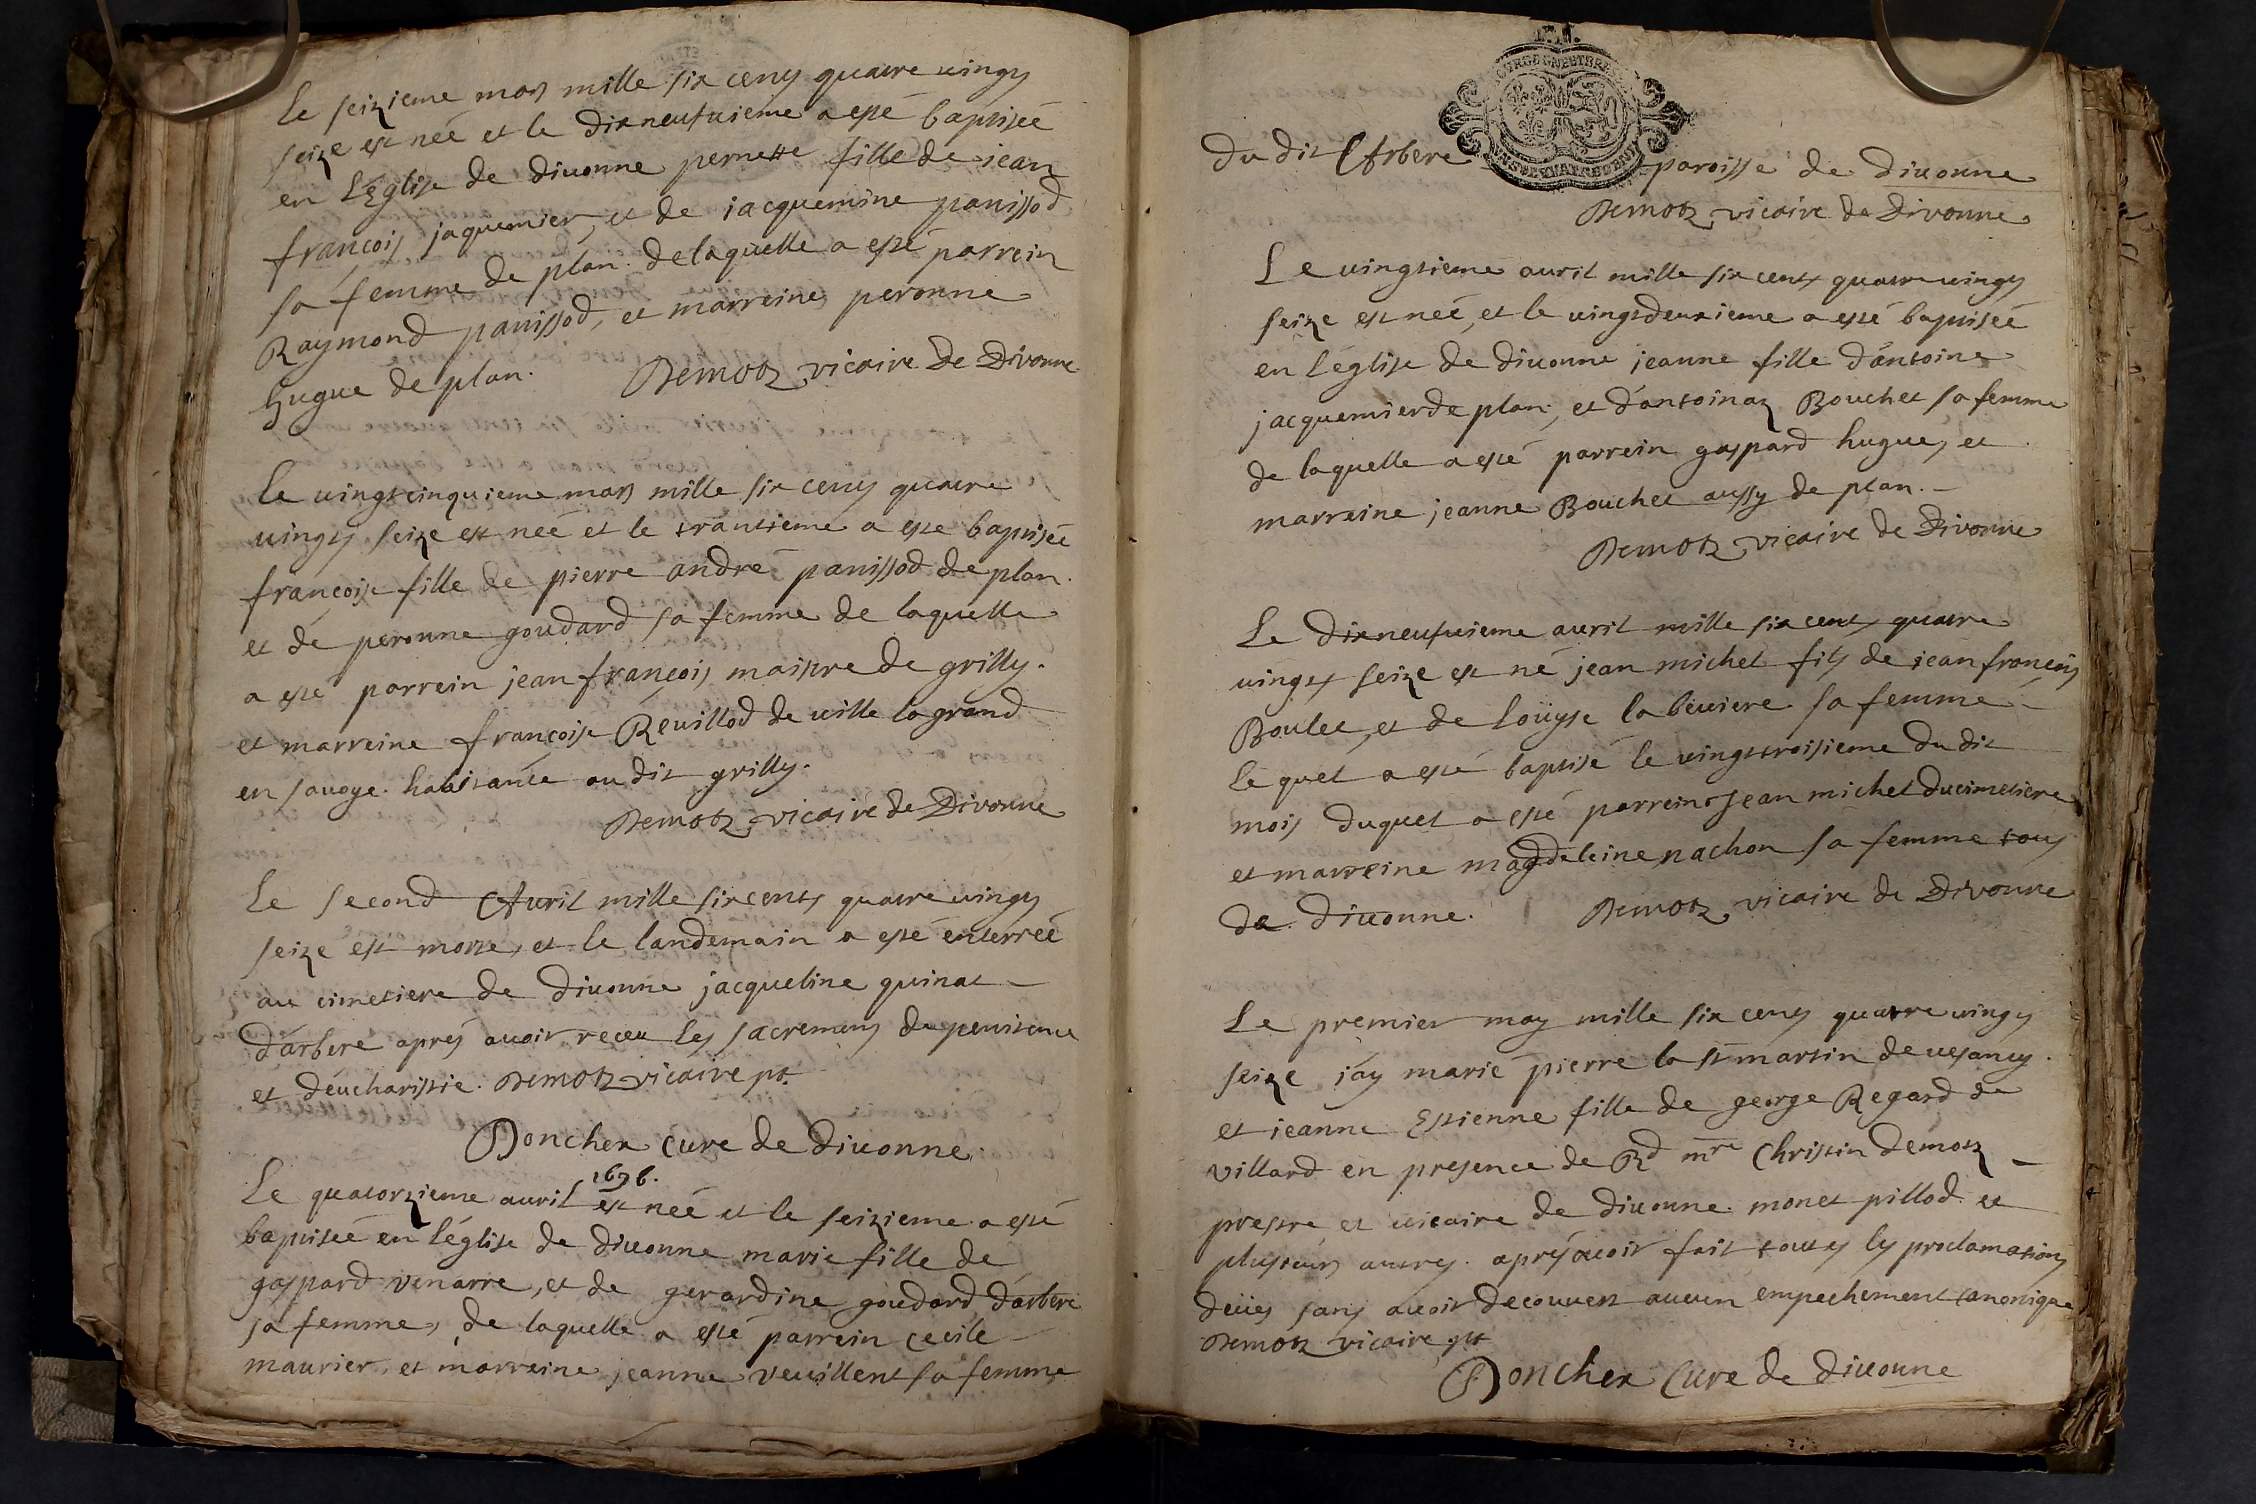 Le seizieme mars mille six cens quatre vings
seize est neé et le dixneufvieme a esté baptiseé
en L'Eglise de divonne pernette fille de jean
françois jaquemier, et de jacquemine panissod
sa femme de plan. de laquelle a esté parrein
Raymond panissod, et marreine peronne
hugue de plan. Demotz vicaire de Divonne
Le vingtcinquieme mars mille six cens quatre
vings seize est neé et le trantieme a esté baptiseé
françoise fille de pierre andré panissod de plan.
et de peronne goudard sa femme de laquelle
a esté parrein jean françois maistre de grilly.
et marreine françoise Revillod de ville la grand
en savoye. habitante au dit grilly.
Demotz vicaire de Divonne
Le second Avril mille six cents quatre vings
seize est morte, et le landemain a esté enterreé
au cimetiere de divonne jacqueline quinat
d'arbere aprés avoir receu les sacremens de penitence
et d'eucharistie. Demotz vicaire pt
Poncher curé de divonne.
1696.
Le quatorzieme avril est neé et le seizieme a esté
baptiseé en l'église de divonne marie fille de
gaspard venarre, et de gerardine goudard d'arbere
sa femme, de laquelle a esté parrein cecile
maurier, et marreine jeanne veuillent sa femme
du dit Arbere paroisse de divonne
Demotz vicaire de Divonne
Le vingtieme avril mille six cents quatre vings
seize est neé, et le vingtdeuxieme a esté baptiseé
en l'église de divonne jeanne fille d'antoine
jacquemier de plan, et d'antoinaz Bouchet sa femme
de laquelle a esté parrein gaspard hugue, et
marraine jeanne Bouchet aussy de plan.
Demotz vicaire de Divonne
Le dixneufvieme avril mille six cents quatre
vings seize est né jean michel fils de jean françois
Boulet, et de Loüyse la béviere sa femme
Lequel a esté baptisé le vingttroisieme du dit
mois duquel a esté parrein Jean michel Ducimetiere
et marreine magdeleine nachon sa femme tous
de divonne. Demotz vicaire de Divonne
Le premier may mille six cens quatre vings
seize j'ay marié pierre la st martin de vesancy.
et jeanne Estienne fille de george Regard de
villard en presence de Rd mre Christin demotz
prestre et vicaire de divonne. monet pillod et
plusieurs autres. aprés avoir fait toutes les proclamations
deües sans avoir decouvert aucun empechement canonique
Demotz vicaire pt
Poncher Curé de divonne